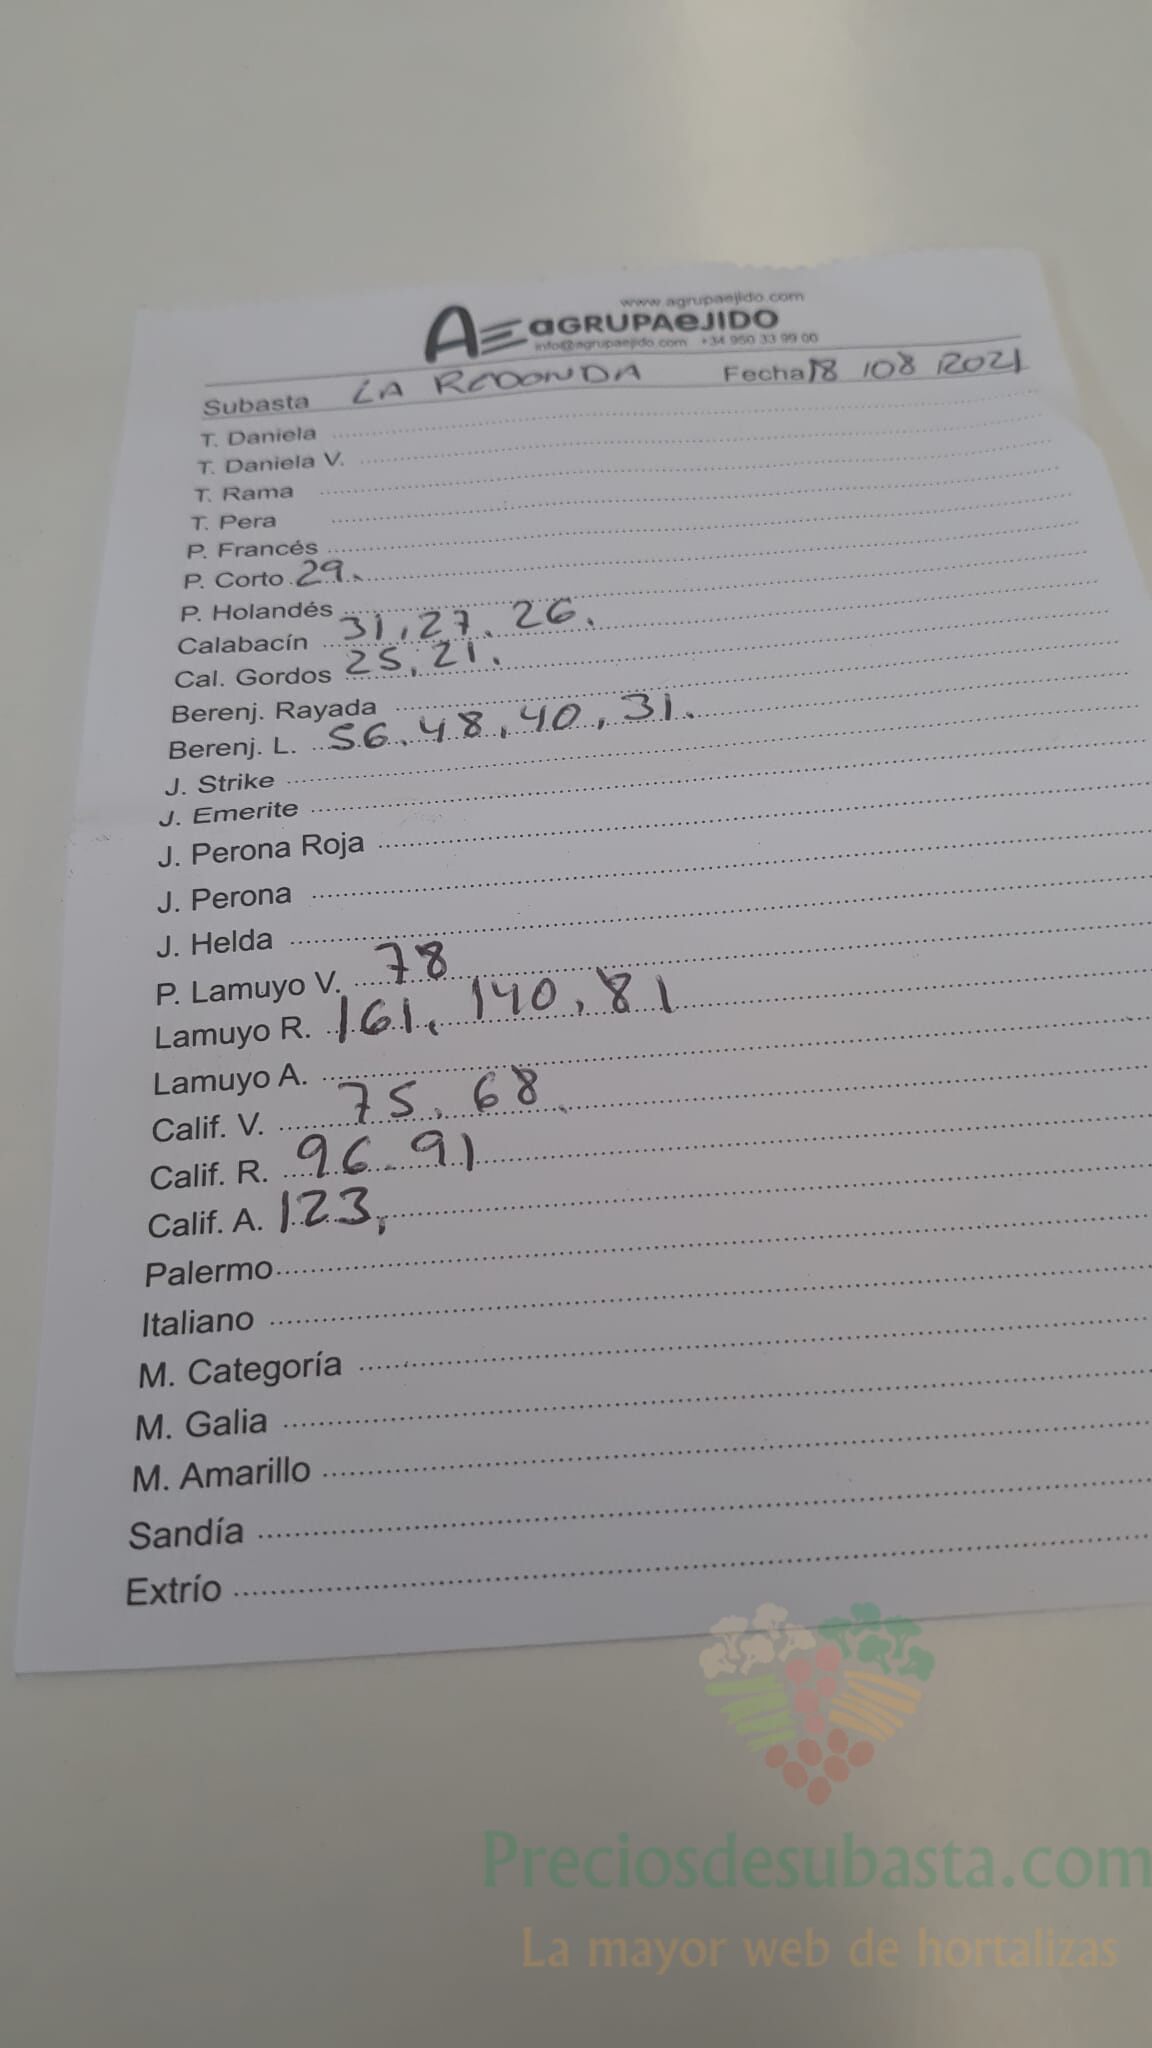 www.agrupaejido.com
AGRUPAEJIDO
info@agrupaejido.com +34 950 33 99 00
Subasta LA REDONDA Fecha 18 / 08 / 2021
T. Daniela
T. Daniela V.
T. Rama
T. Pera
P. Francés
P. Corto 29.
P. Holandés
Calabacín 31, 27, 26.
Cal. Gordos 25, 21.
Berenj. Rayada
Berenj. L. 56, 48, 40, 31.
J. Strike
J. Emerite
J. Perona Roja
J. Perona
J. Helda
P. Lamuyo V. 78
Lamuyo R. 161, 140, 81
Lamuyo A.
Calif. V. 75, 68
Calif. R. 96 - 91
Calif. A. 123,
Palermo
Italiano
M. Categoría
M. Galia
M. Amarillo
Sandía
Extrío
Preciosdesubasta.com
La mayor web de hortalizas